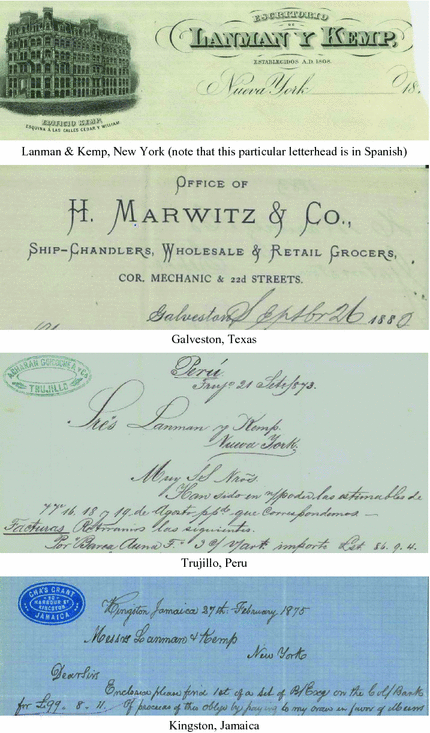 ESCRITORIO
DE
LANMAN Y KEMP,
ESTABLECIDOS A.D. 1808.
Nueva York 18
EDIFICIO KEMP.
ESQUINA Á LAS CALLES CEDAR Y WILLIAM.
Lanman & Kemp, New York (note that this particular letterhead is in Spanish)
OFFICE OF
H. MARWITZ & CO.,
SHIP-CHANDLERS, WHOLESALE & RETAIL GROCERS,
COR. MECHANIC & 22d STREETS.
Galveston, Septbr 26 1880
Galveston, Texas
TRUJILLO
Perú
Trujo 21 Set/873.
Sres Lanman y Kemp.
Nueva York.
Muy SS Nros.
Han sido en n/poder las estimables de
16. 18 y 19. de Agosto ppdo. que correspondemos.—
Facturas. Retornamos las siguientes.
Por Barca Anna 86. 9. 4.
Trujillo, Peru
CHAS GRANT
HARBOUR ST
KINGSTON
JAMAICA
Kingston Jamaica 27th February 1875
Messrs Lanman & Kemp
New York
Dear Sirs
Enclose please find 1st of a set of B/Exg on the Col Bank
for £99. 8. 11. Of process of this oblige by paying to my order in favor of
Kingston, Jamaica